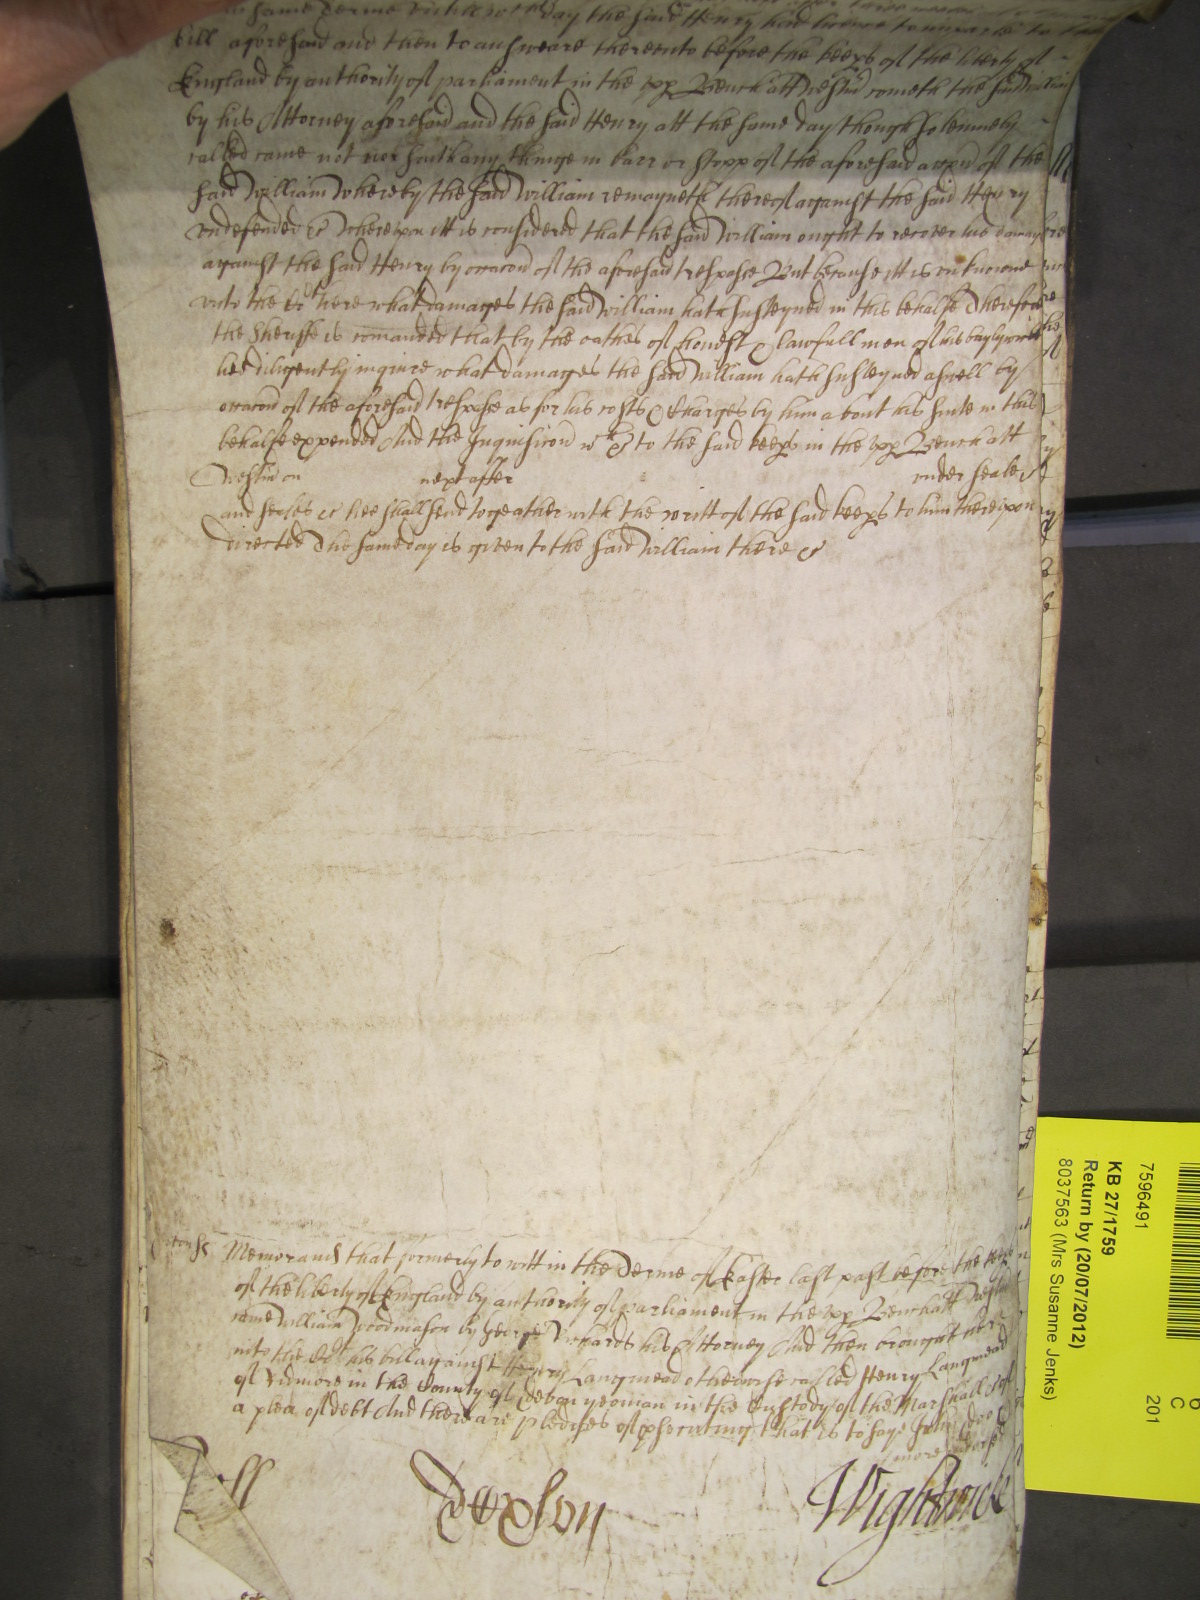 same Terme untill day the said Henry had
bill aforesaid and then to answeare thereunto before the keeps of the liberty of
England by authority of parliament in the upp Bench att Westm cometh the said William
by his Attorney aforesaid and the said Henry att the same day though solemnely
called came not nor saith any thinge in barr or stopp of the aforesaid accon of the
said William whereby the said William remayneth thereof against the said Henry
undefended &c Whereupon itt is considered that the said William ought to recover his damages
against the said Henry by occacon of the aforesaid trespasse But because itt is unknowne
unto the Co here what damages the said William hath susteyned in this behalfe Therefore
the Sheriffe is comanded that by the oathes of honest & lawfull men of his baylywick
hee diligently inquire what damages the said William hath susteyned aswell by
occacon of the aforesaid trespasse as for his costs & charges by him about his suite in this
behalfe expended And the Inquisicon wch &c to the said keeps in the upp Bench att
Westm on next after under seale
and seales &c hee shall send togeather with the writt of the said keeps to him thereupon
directed The same day is given to the said William there &c
Memorand that formerly to witt in the Terme of Easter last past before the keeps
of the liberty of England by authority of parliament in the upp Bench att Westm
came William Woodmason by George his Attorney And then brought here
into the Co his bill against Henry Langmead otherwise called Henry Langmead
of in the County of Devon yeoman in the Custody of the Marshall &c of
a plea of debt And there are pledges of psecuting that is to saye John Doe
more
Wightwick
KB 27/1759
Return by (20/07/2012)
8037563 (Mrs Susanne Jenks)
7596491
C
201